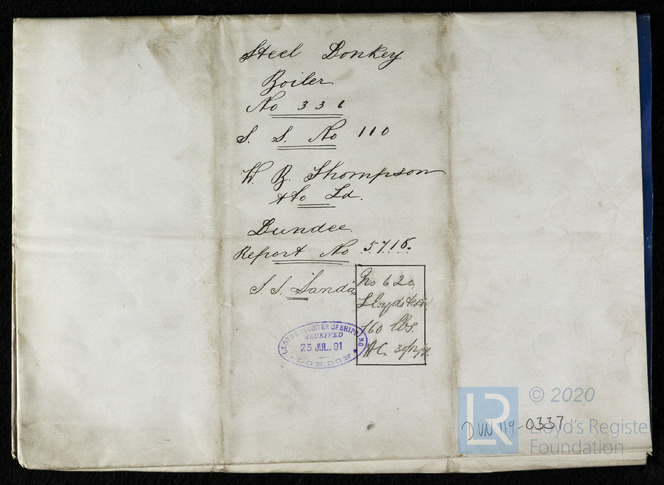 Steel Donkey
Boiler
No 336
S. S. No 110
W. B. Thompson
& Co Ld.
Dundee
Report No 5715.
S.S. Sanda
No 620
Lloyds test
160 lbs.
LLOYD'S REGISTER OF SHIPPING
RECEIVED
23 JUL. 91
LONDON
DUN 119-0337
LR
© 2020
Lloyd's Registe
Foundation